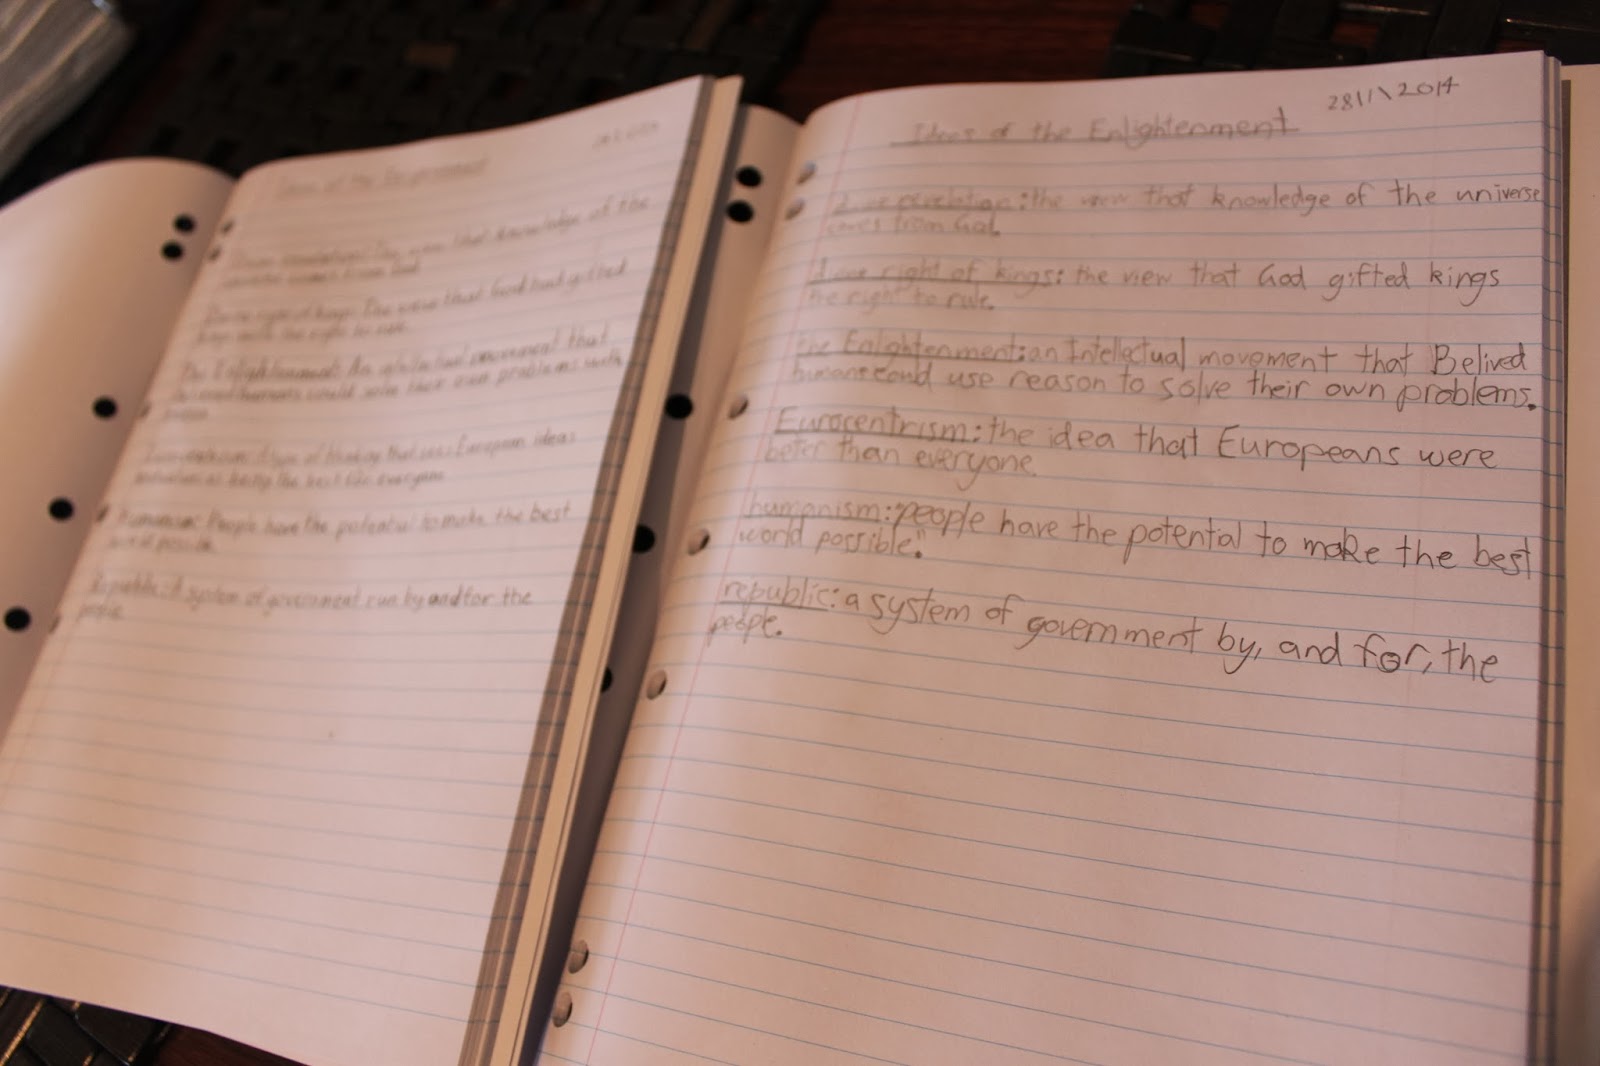 Ideas of the Enlightenment
the view that knowledge of the
Divine right of kings: The view that God had gifted
kings with the right to rule.
The Enlightenment: An intellectual movement that
humans could solve their own problems with
reason
Eurocentrism: A type of thinking that sees European ideas
as being the best for everyone
Humanism: People have the potential to make the best
world possible.
Republic: A system of government run by and for the
people
28\11\2014
Ideas of the Enlightenment
Divine revelation: the view that knowledge of the universe
comes from God.
divine right of kings: the view that God gifted kings
the right to rule.
the Enlightenment: an Intellectual movement that Belived
humans could use reason to solve their own problems.
Eurocentrism: the idea that Europeans were
beter than everyone.
humanism: people have the potential to make the best
world possible."
republic: a system of government by, and for, the
people.